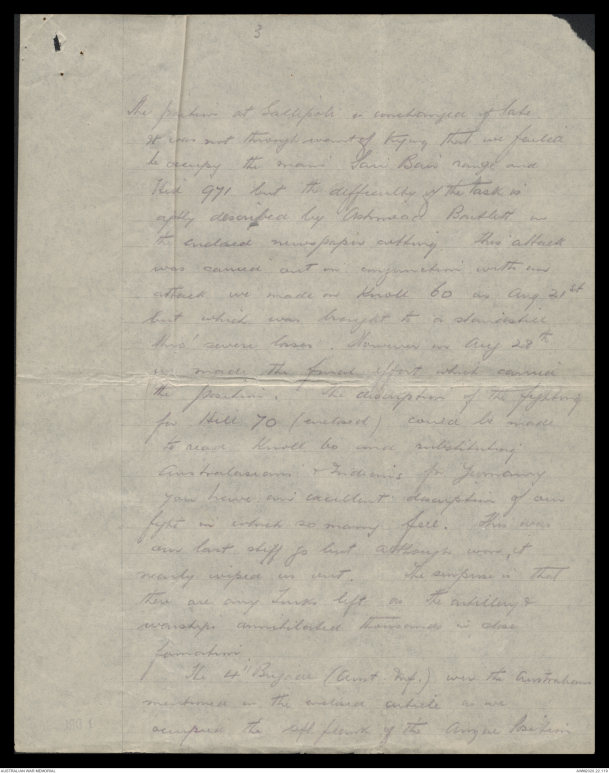 3
The position at Gallipoli is unchanged of late
It was not through want of trying that we failed
to occupy the main Sari Bair range and
Hill 971 but the difficulty of the task is
aptly described by Ashmead Bartlett in
the enclosed newspaper cutting This attack
was carried out in conjunction with an
attack we made on Knoll 60 on Aug 21st
but which was brought to a standstill
thro' severe losses. However on Aug 28th
we made the final effort which carried
the position. The description of the fighting
for Hill 70 (enclosed) could be made
to read Knoll 60 and substituting
Australasians & Indians for Yeomanry
you have an excellent description of our
fight in which so many fell. This was
our last stiff go but although won, it
nearly wiped us out. The surprise is that
there are any Turks left as the artillery &
warships annihilated thousands in close
formation.
The 4th Brigade (Aust Inf.) were the Australians
mentioned in the enclosed article as we
occupied the left flank of the Anzac Position
AUSTRALIAN WAR MEMORIAL